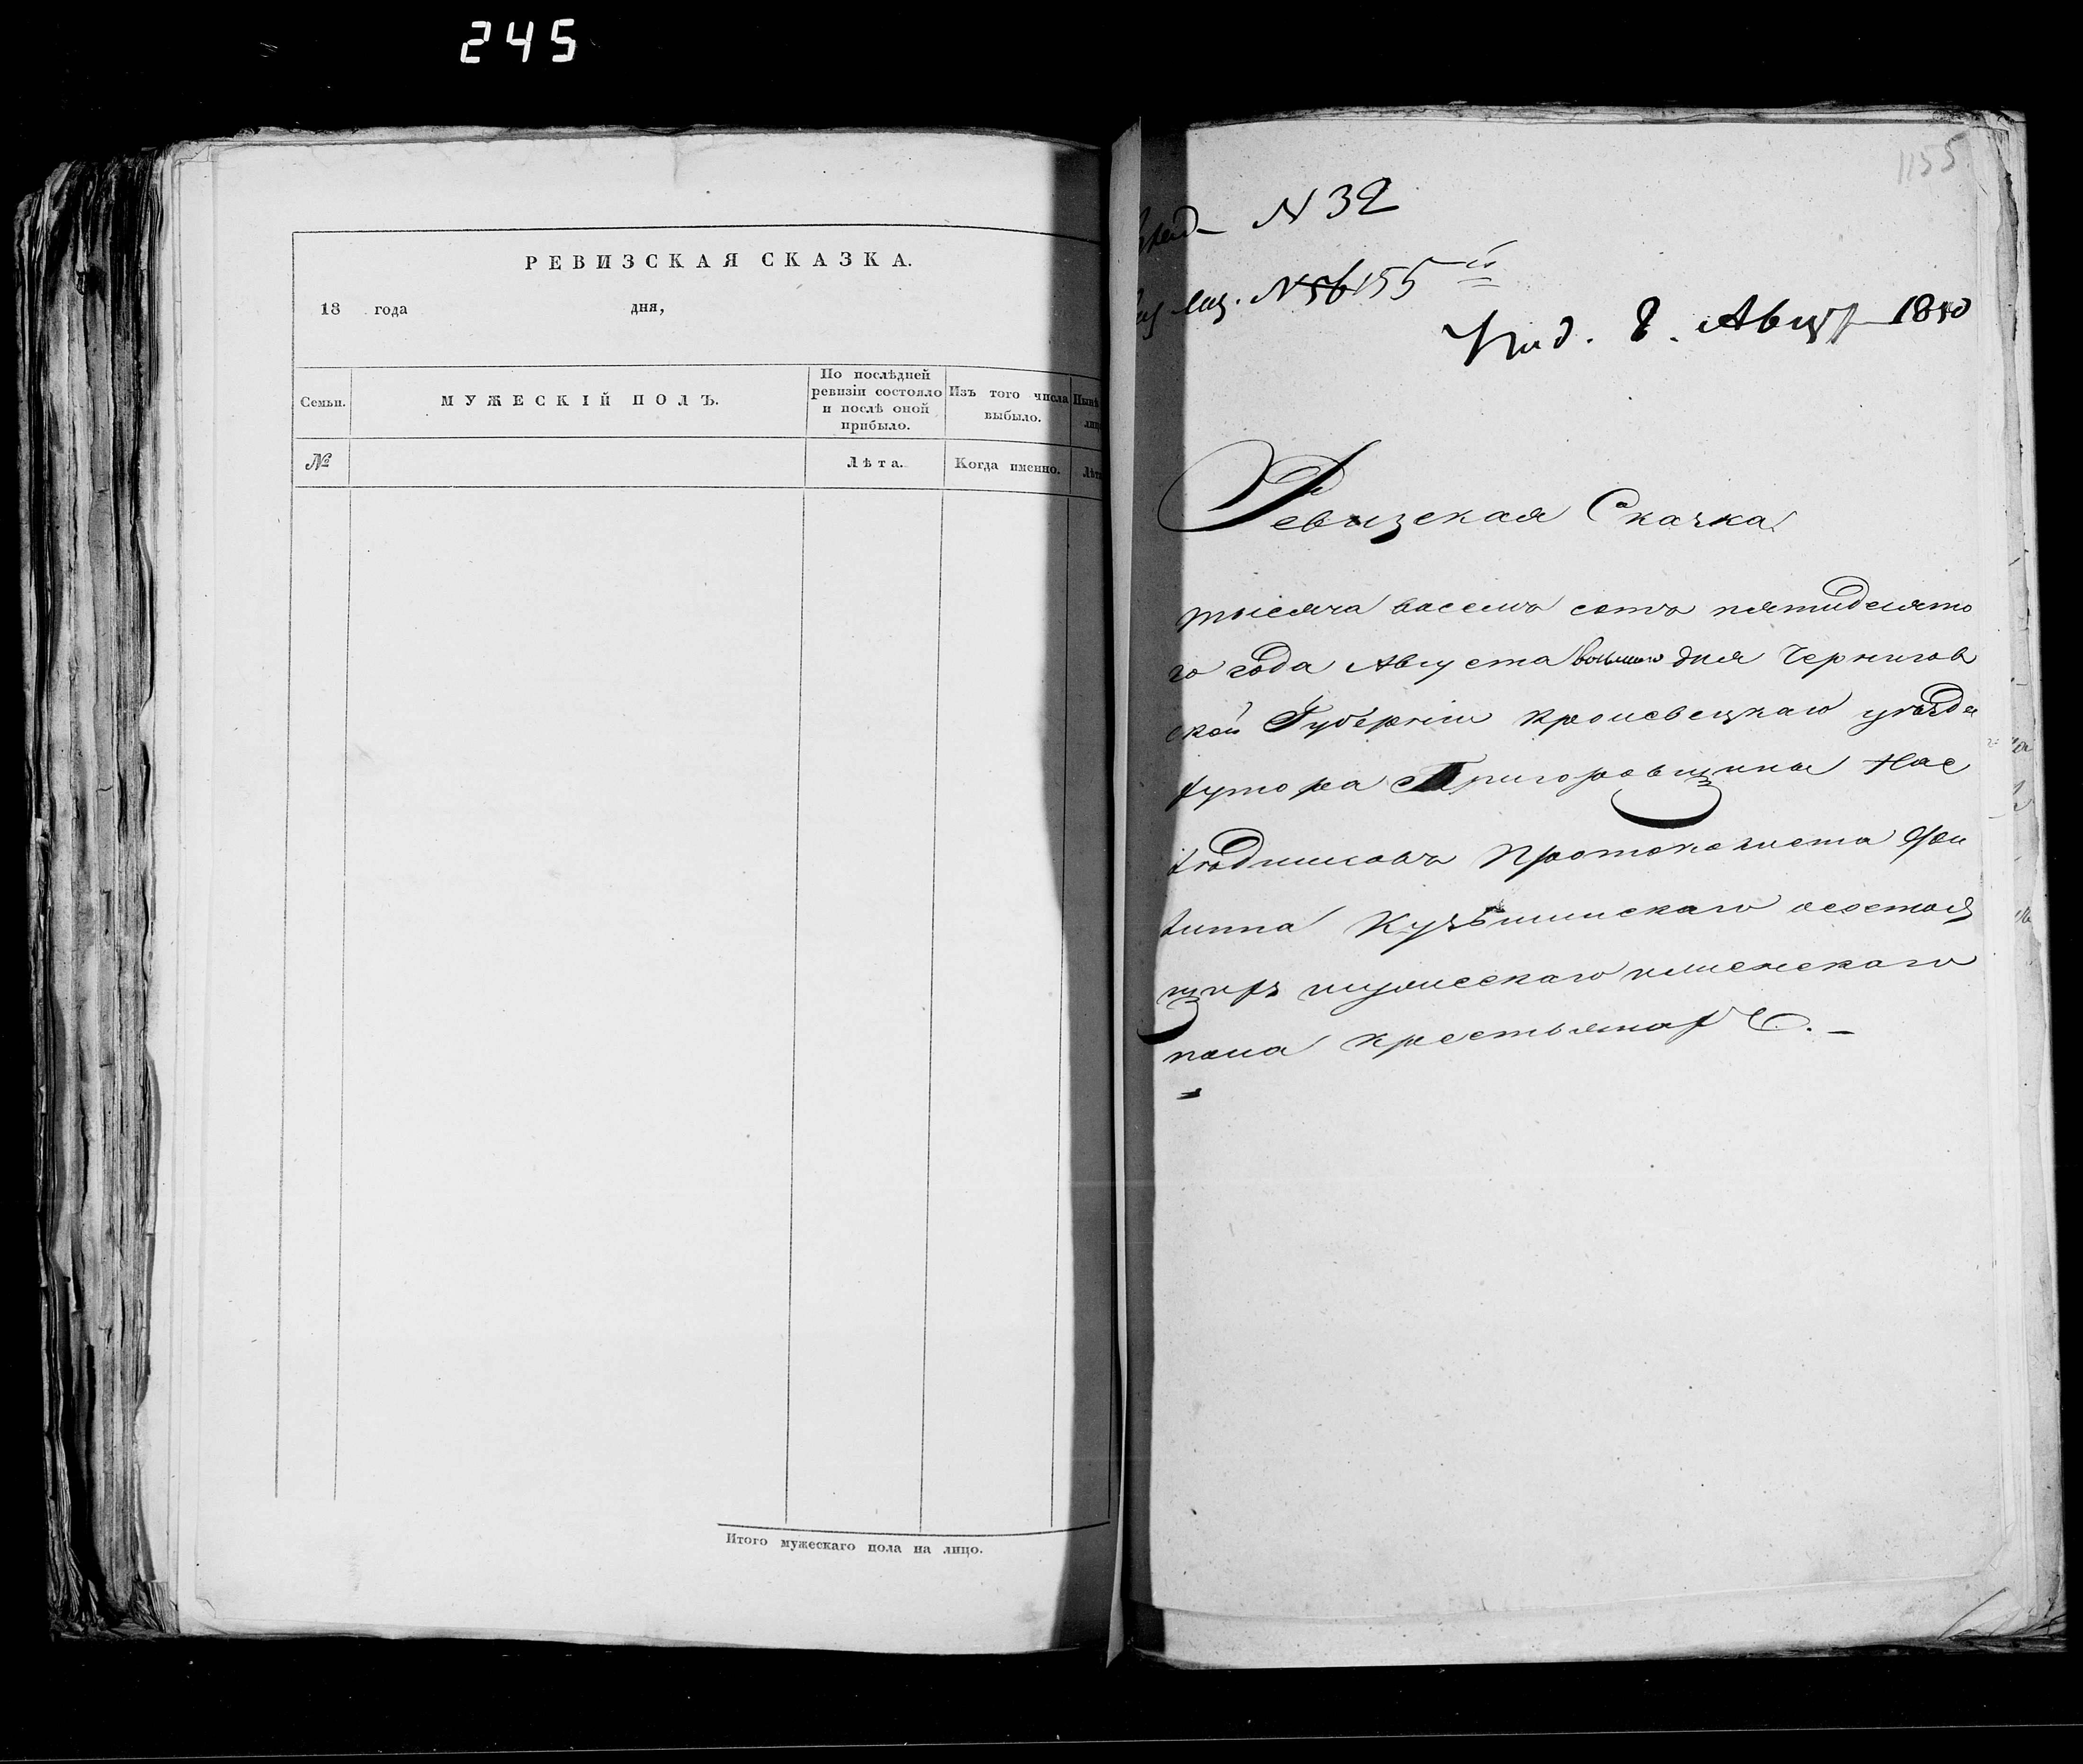 245
РЕВИЗСКАЯ СКАЗКА.
18 года дня,
Семьи.
МУЖЕСКІЙ ПОЛЪ.
По послѣдней
ревизіи состояло
и послѣ оной
прибыло.
Изъ того числа
выбыло.
№
Лѣта.
Когда именно.
Итого мужескаго пола на лицо.
1155
N 32
N 56 155
8. Август 1850
Ревизская Сказка
тысяча восемь сотъ пятидесято
го года Августа восьмаго дня Чернигов
ской Губерніи Кролевецкаго уѣзда
хутора Григоровщины Нас
лѣдниковъ Протоколиста Фи
липа Кузьминскаго осостоя
щихъ мужескаго и женскаго
пола крестьянахъ. —